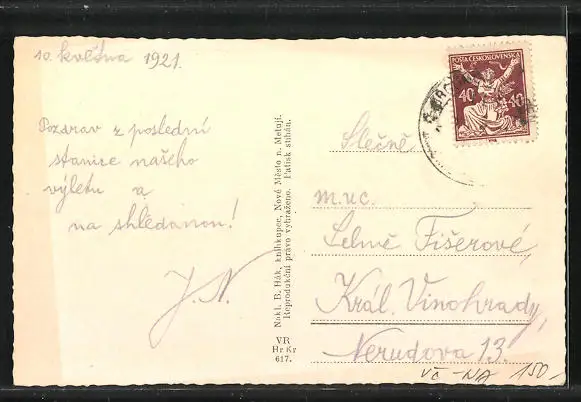 10. května 1921.
Pozdrav z poslední
stanice našeho
výletu a
na shledanou!
J. N.
Nakl. B. Hák, knihkupec, Nové Město n. Metují.
Reprodukční právo vyhraženo. Patisk stíhán.
VR
Hr Kr
617.
POŠTA ČESKOSLOVENSKÁ
40 40
Slečně
m.uc.
Selmě Fišerové,
Král. Vinohrady,
Nerudova 13.
VČ -NA 150,-